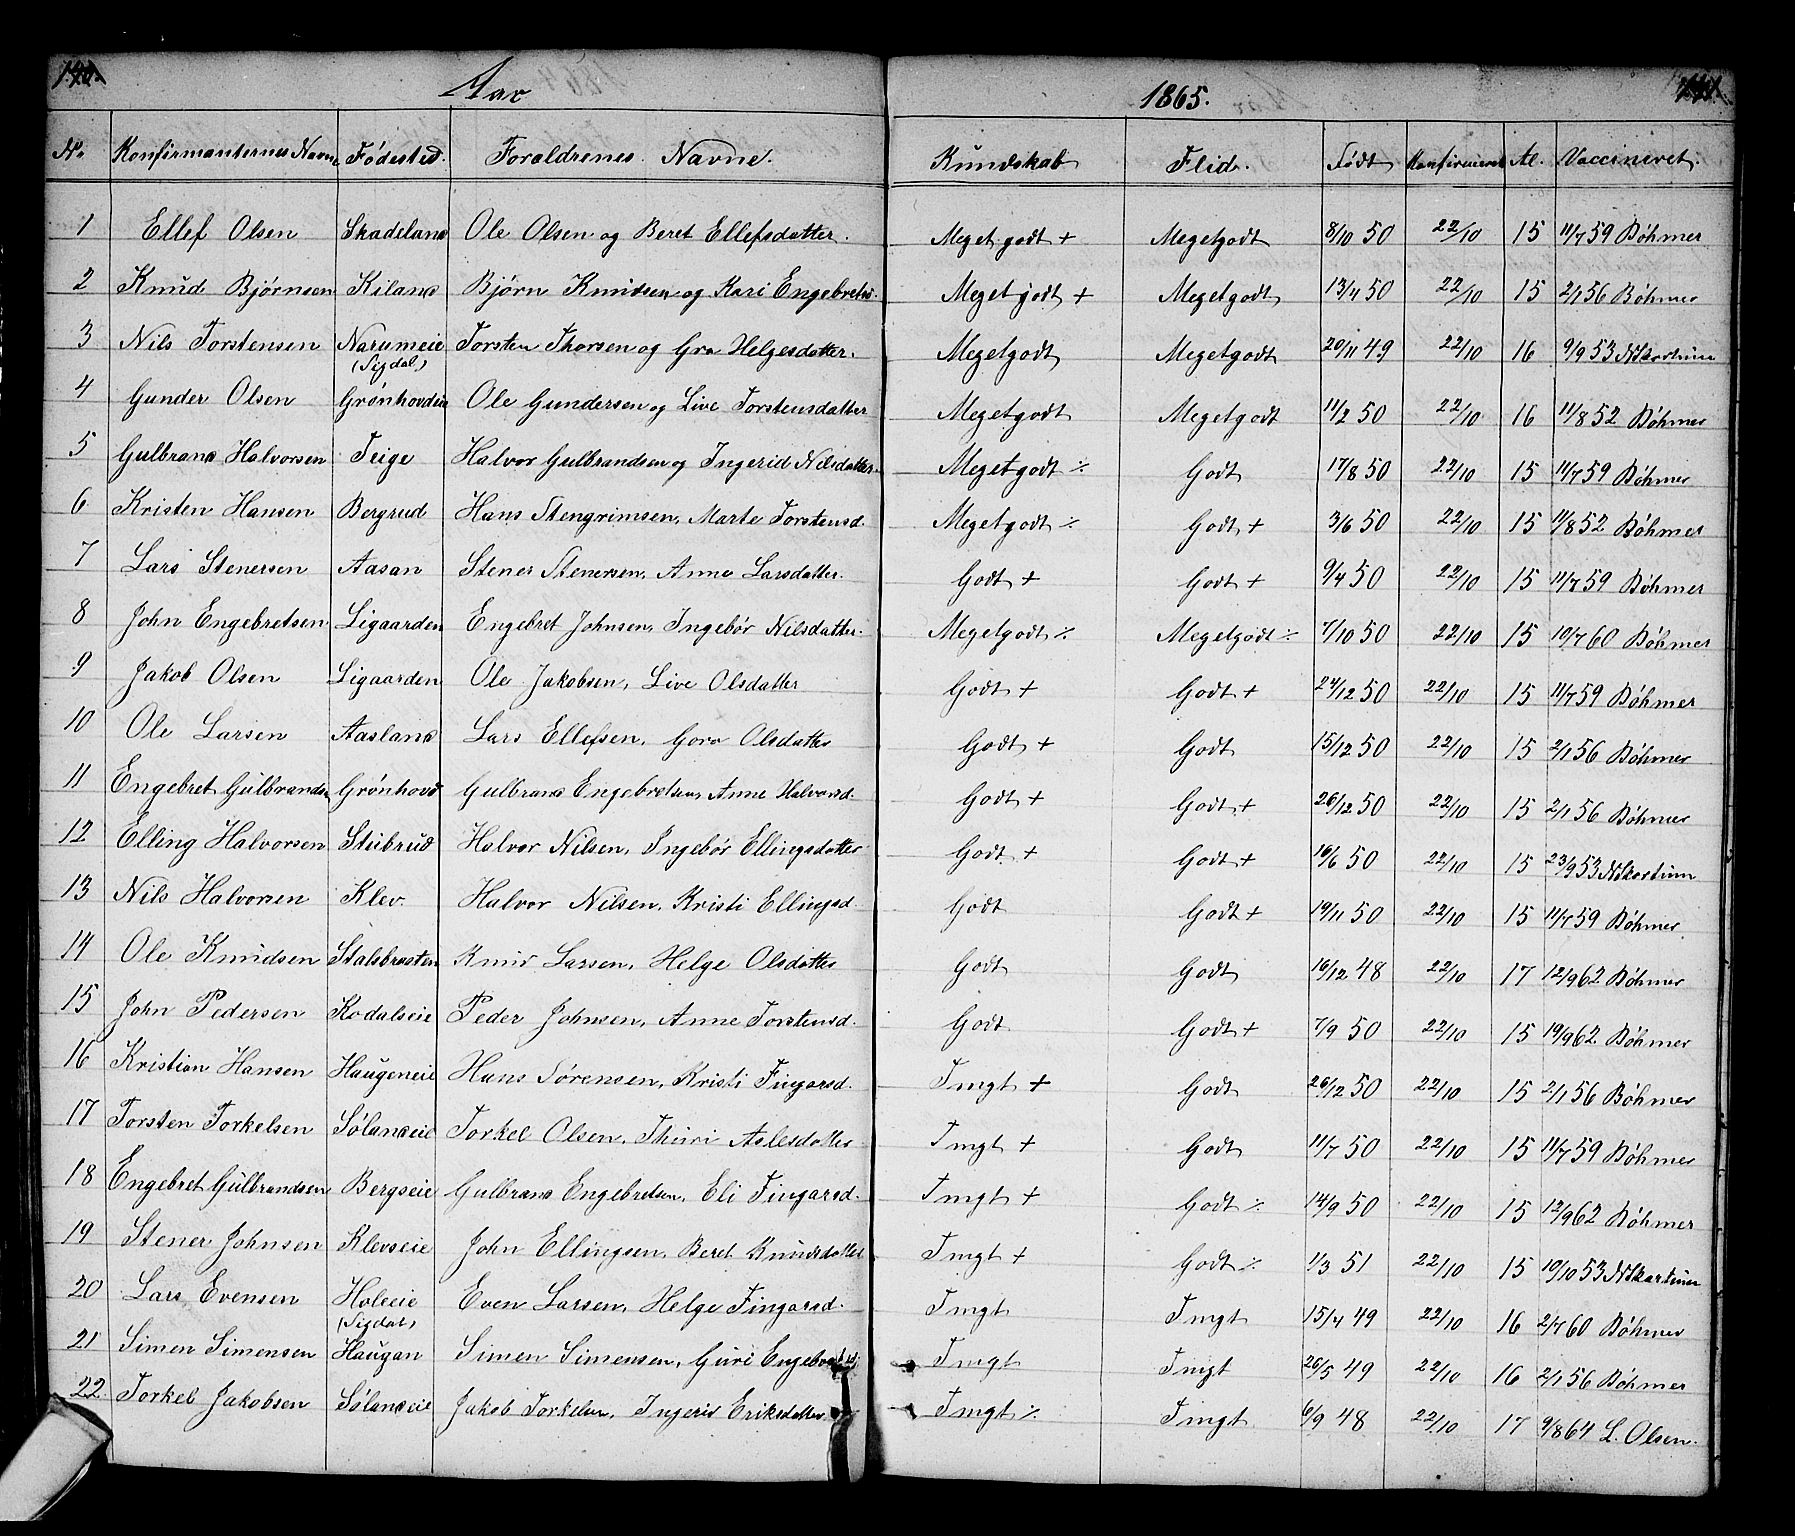 Aar 1865.
No. Konfirmanternes Navne Fødested. Foraldrenes Navne. Kundskab Flid. Født Konfirmeret Al. Vaccineret.
1 Ellef Olsen Skadeland Ole Olsen og Beret Ellefsdatter. Meget godt + Megetgodt 8/10 50 22/10 15 11/7 59 Bøhmer
2 Knud Bjørnsen Kiland Bjørn Knudsen og Kari Engebretsd. Megetgodt + Megetgodt 13/11 50 22/10 15 2/1 56 Bøhmer
3 Nils Torstensen Narumeie Torsten Thorsen og Gro Helgesdatter. Megetgodt Megetgodt 20/11 49 22/10 16 9/9 53 NSkartum
(Sigdal)
4 Gunder Olsen Grønhovdeie Ole Gundersen og Live Torstensdatter Megetgodt Megetgodt 11/2 50 22/10 16 11/8 52 Bøhmer
5 Gulbrand Halvorsen Teige Halvor Gulbrandsen og Ingerid Nilsdatter. Megetgodt ٪ Godt 17/8 50 22/10 15 11/7 59 Bøhmer
6 Kristen Hansen Bergrud Hans Stengrimsen, Marte Torstensd. Megetgodt ٪ Godt + 3/6 50 22/10 15 11/8 52 Bøhmer
7 Lars Stenersen Aasan Stener Stenersen, Anne Larsdatter. Godt + Godt + 9/4 50 22/10 15 11/7 59 Bøhmer
8 John Engebretsen Ligaarden Engebret Johnsen, Ingebør Nilsdatter. Megetgodt ٪ Megetgodt ٪ 7/10 50 22/10 15 10/7 60 Bøhmer
9 Jakob Olsen Ligaarden Ole Jakobsen, Live Olsdatter Godt + Godt + 24/12 50 22/10 15 11/7 59 Bøhmer
10 Ole Larsen Aasland Lars Ellefsen, Goro Olsdatter Godt + Godt 15/12 50 22/10 15 2/1 56 Bøhmer
11 Engebret Gulbrandsen Grønhovd Gulbrand Engebretsen, Anne Halvorsd. Godt + Godt + 26/12 50 22/10 15 2/1 56 Bøhmer
12 Elling Halvorsen Stubrud Halvor Nilsen, Ingebør Ellingsdatter Godt + Godt + 16/6 50 22/10 15 23/9 53 NSkartum
13 Nils Halvorsen Klev. Halvor Nilsen, Kristi Ellingsd. Godt Godt + 19/11 50 22/10 15 11/7 59 Bøhmer.
14 Ole Knudsen Stalsbraaten Knud Larsen, Helge Olsdatter Godt Godt 16/12 48 22/10 17 12/9 62 Bøhmer
15 John Pedersen Kodalseie Peder Johnsen, Anne Torstensd. Godt Godt + 7/9 50 22/10 15 19/9 62 Bøhmer
16 Kristian Hansen Haugeneie Hans Sørensen, Kristi Fingarsd. Tmgt + Godt 26/12 50 22/10 15 2/1 56 Bøhmer
17 Torsten Torkelsen Sølandeie Torkel Olsen, Thuri Aslesdatter Tmgt + Godt 11/7 50 22/10 15 11/7 59 Bøhmer
18 Engebret Gulbrandsen Bergseie Gulbrand Engebretsen, Eli Fingarsd. Tmgt + Godt ٪ 14/9 50 22/10 15 12/9 62 Bøhmer
19 Stener Johnsen Klevseie John Ellingsen, Beret Knudsdatter Tmgt + Godt ٪ 1/3 51 22/10 15 10/10 53 NSkartum
20 Lars Evensen Holeeie Even Larsen, Helge Fingarsd. Tmgt Tmgt 15/4 49 22/10 16 2/7 60 Bøhmer
(Sigdal)
21 Simen Simensen Haugan Simen Simensen, Guri Tmgt Tmgt 26/5 49 22/10 16 2/1 56 Bøhmer
22 Torkel Jakobsen Sølandeie Jakob Torkelsen, Ingerid Eriksdatter Tmgt ٪ Tmgt 6/9 48 22/10 17 9/8 64 L. Olsen.